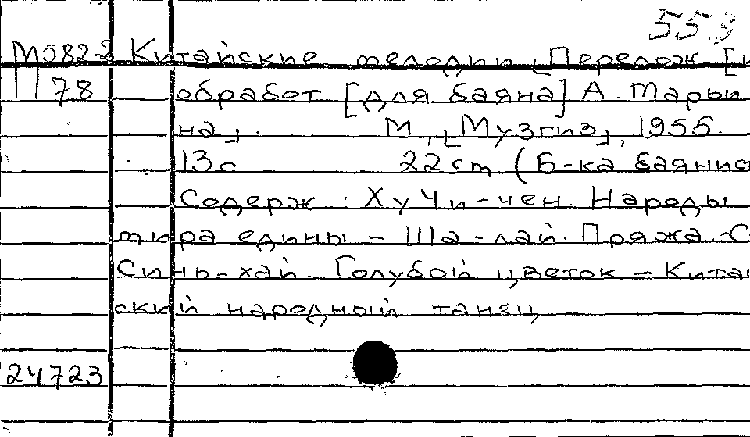 553
М082-2 Китайские мелодии. [Перелож. [и
П 78 обработ. [для баяна] А. Марьи
на]. М., [Музгиз], 1955.
13с 22 cm (Б-ка баянис
Содерж.: Ху Чи-чен. Народы
мира едины. – Ша-лай. Пряжа. – С
Синь-хай. Голубой цветок. – Китай
ский народный танец
24723